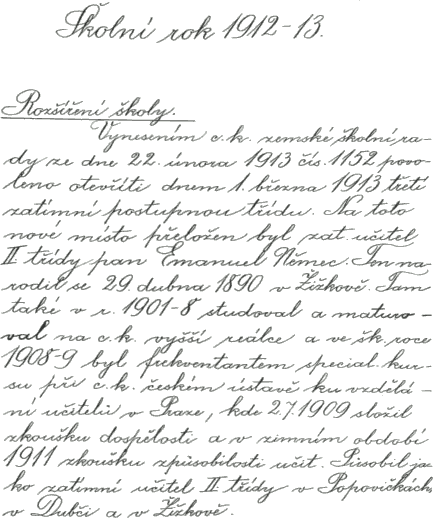 Školní rok 1912-13.
Rozšíření školy.
Vynesením c. k. zemské školní ra-
dy ze dne 22. února 1913 čís. 1152 povo-
leno otevříti dnem 1. března 1913 třetí
zatímní postupnou třídu. Na toto
nové místo přeložen byl zat. učitel
II třídy pan Emanuel Němec. Ten na-
rodil se 29. dubna 1890 v Žižkově. Tam
také v r. 1901-8 studoval a maturo-
val na c. k. vyšší reálce a ve šk. roce
1908-9 byl frekventantem special. kur-
su při c. k. českém ústavě ku vzdělá-
ní učitelů v Praze, kde 2.7.1909 složil
zkoušku dospělosti a v zimním období
1911 zkoušku způsobilosti učit. Působil ja-
ko zatímní učitel II třídy v Popovičkách,
v Dubči a v Žižkově.